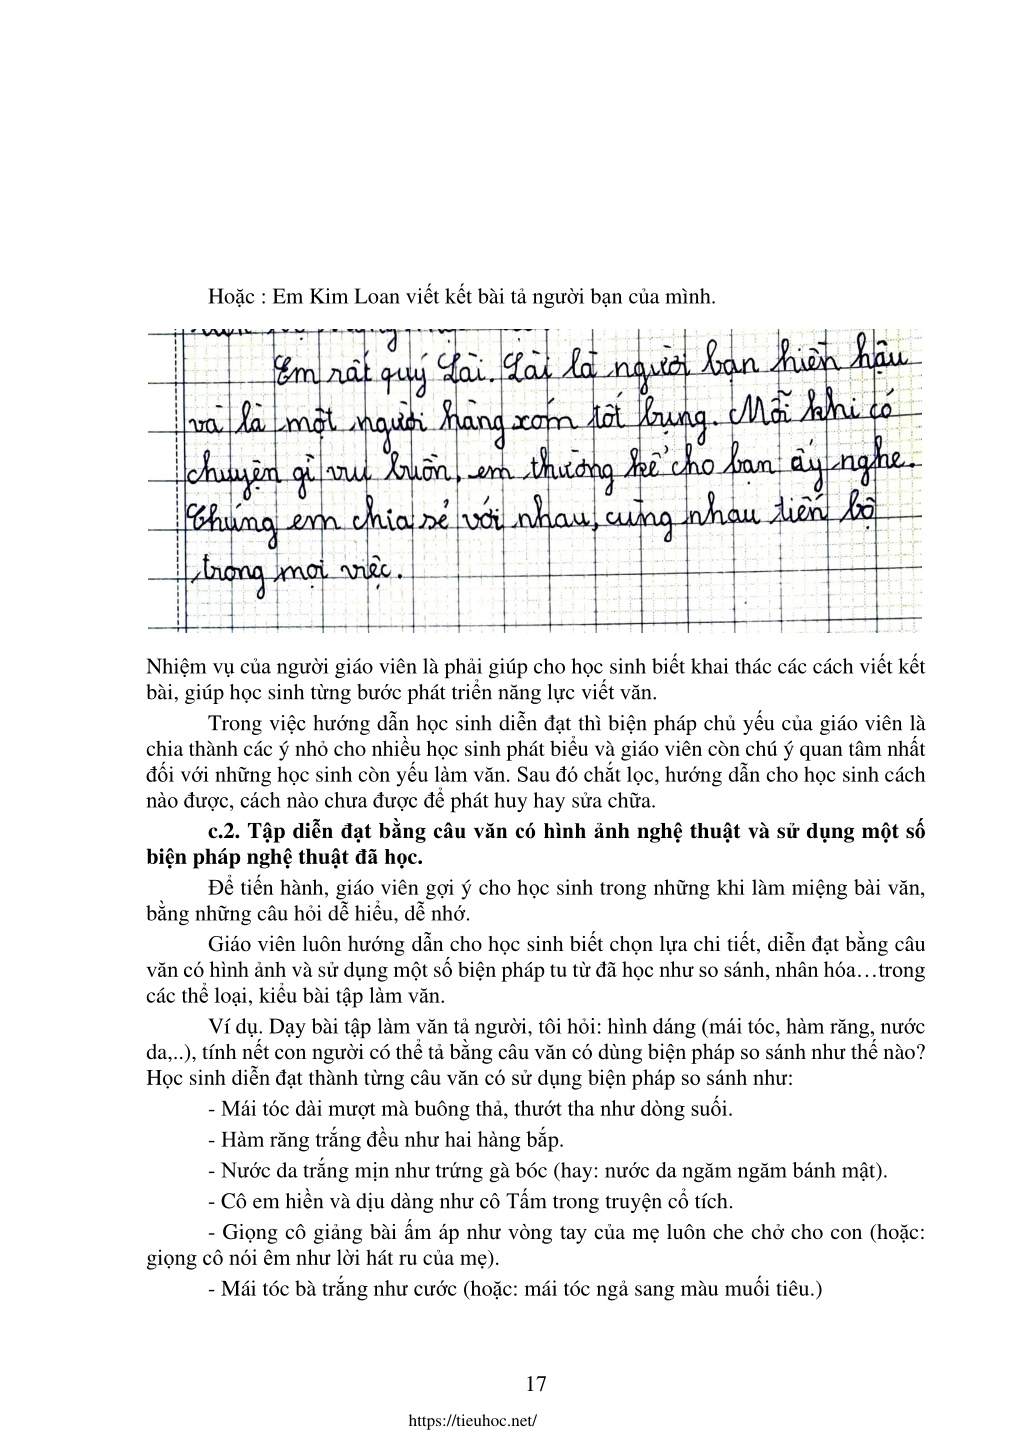 Hoặc : Em Kim Loan viết kết bài tả người bạn của mình.
Em rất quý Lài. Lài là người bạn hiền hậu
và là một người hàng xóm tốt bụng. Mỗi khi có
chuyện gì vui buồn, em thường kể cho bạn ấy nghe.
Chúng em chia sẻ với nhau, cùng nhau tiến bộ
trong mọi việc.
Nhiệm vụ của người giáo viên là phải giúp cho học sinh biết khai thác các cách viết kết
bài, giúp học sinh từng bước phát triển năng lực viết văn.
Trong việc hướng dẫn học sinh diễn đạt thì biện pháp chủ yếu của giáo viên là
chia thành các ý nhỏ cho nhiều học sinh phát biểu và giáo viên còn chú ý quan tâm nhất
đối với những học sinh còn yếu làm văn. Sau đó chắt lọc, hướng dẫn cho học sinh cách
nào được, cách nào chưa được để phát huy hay sửa chữa.
c.2. Tập diễn đạt bằng câu văn có hình ảnh nghệ thuật và sử dụng một số
biện pháp nghệ thuật đã học.
Để tiến hành, giáo viên gợi ý cho học sinh trong những khi làm miệng bài văn,
bằng những câu hỏi dễ hiểu, dễ nhớ.
Giáo viên luôn hướng dẫn cho học sinh biết chọn lựa chi tiết, diễn đạt bằng câu
văn có hình ảnh và sử dụng một số biện pháp tu từ đã học như so sánh, nhân hóa…trong
các thể loại, kiểu bài tập làm văn.
Ví dụ. Dạy bài tập làm văn tả người, tôi hỏi: hình dáng (mái tóc, hàm răng, nước
da,..), tính nết con người có thể tả bằng câu văn có dùng biện pháp so sánh như thế nào?
Học sinh diễn đạt thành từng câu văn có sử dụng biện pháp so sánh như:
- Mái tóc dài mượt mà buông thả, thướt tha như dòng suối.
- Hàm răng trắng đều như hai hàng bắp.
- Nước da trắng mịn như trứng gà bóc (hay: nước da ngăm ngăm bánh mật).
- Cô em hiền và dịu dàng như cô Tấm trong truyện cổ tích.
- Giọng cô giảng bài ấm áp như vòng tay của mẹ luôn che chở cho con (hoặc:
giọng cô nói êm như lời hát ru của mẹ).
- Mái tóc bà trắng như cước (hoặc: mái tóc ngả sang màu muối tiêu.)
17
https://tieuhoc.net/